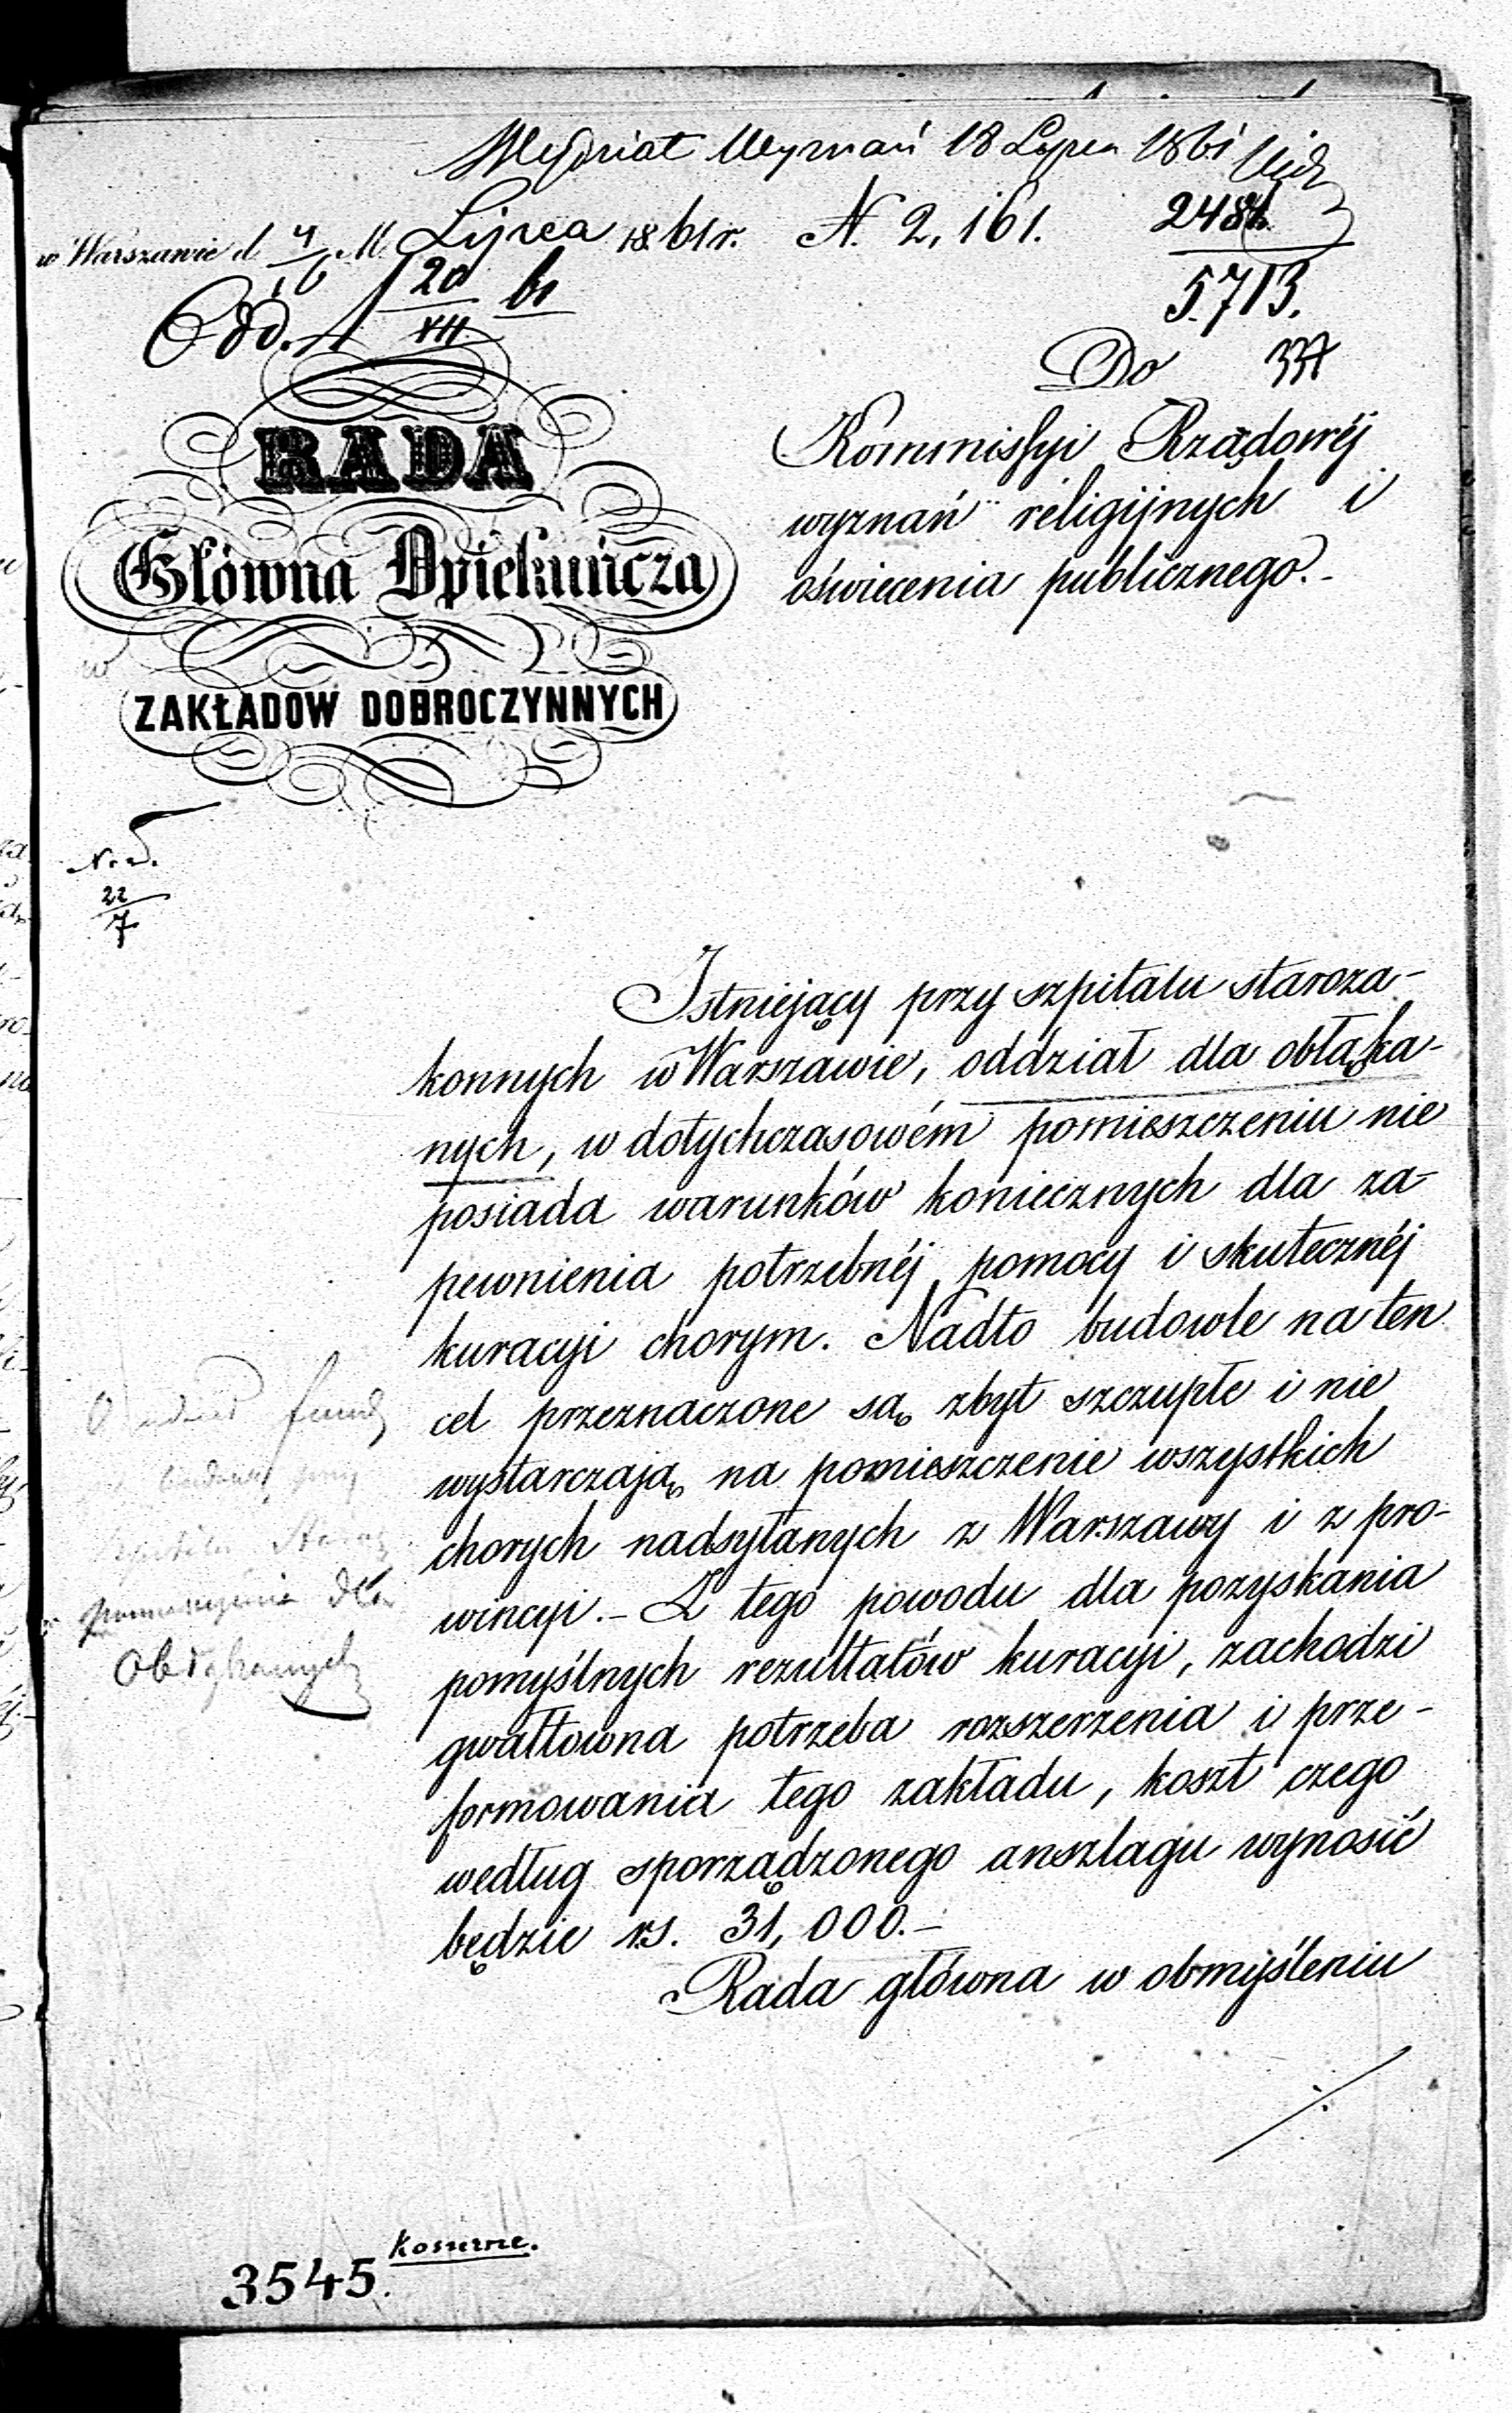 Wydział Wyznań 18 Lipca 1861
w Warszawie d. 4/16 M. Lipca 1861 r. N. 2,161.
2484
5713.
Odd. 20/VII 61
Do
RADA
Główna Opiekuńcza
ZAKŁADOW DOBROCZYNNYCH
Kommissyi Rządowéj
wyznań religijnych i
oświecenia publicznego.-
22/7
Istniejący przy szpitalu staroza-
konnych w Warszawie, oddział dla obłąka-
nych, w dotychczasowém pomieszczeniu nie
posiada warunków koniecznych dla za-
pewnienia potrzebnéj pomocy i skutecznéj
kuracyi chorym. Nadto budowle na ten
cel przeznaczone są zbyt szczupłe i nie
wystarczają na pomieszczenie wszystkich
chorych nadsyłanych z Warszawy i z pro-
wincyi.- Z tego powodu dla pozyskania
pomyślnych rezultatów kuracyi, zachodzi
gwałtowna potrzeba rozszerzenia i prze-
formowania tego zakładu, koszt czego
według sporządzonego anszlagu wynosić
będzie rs. 31,000.-
Rada główna w obmyśleniu
dla
Obłąkanych
3545.